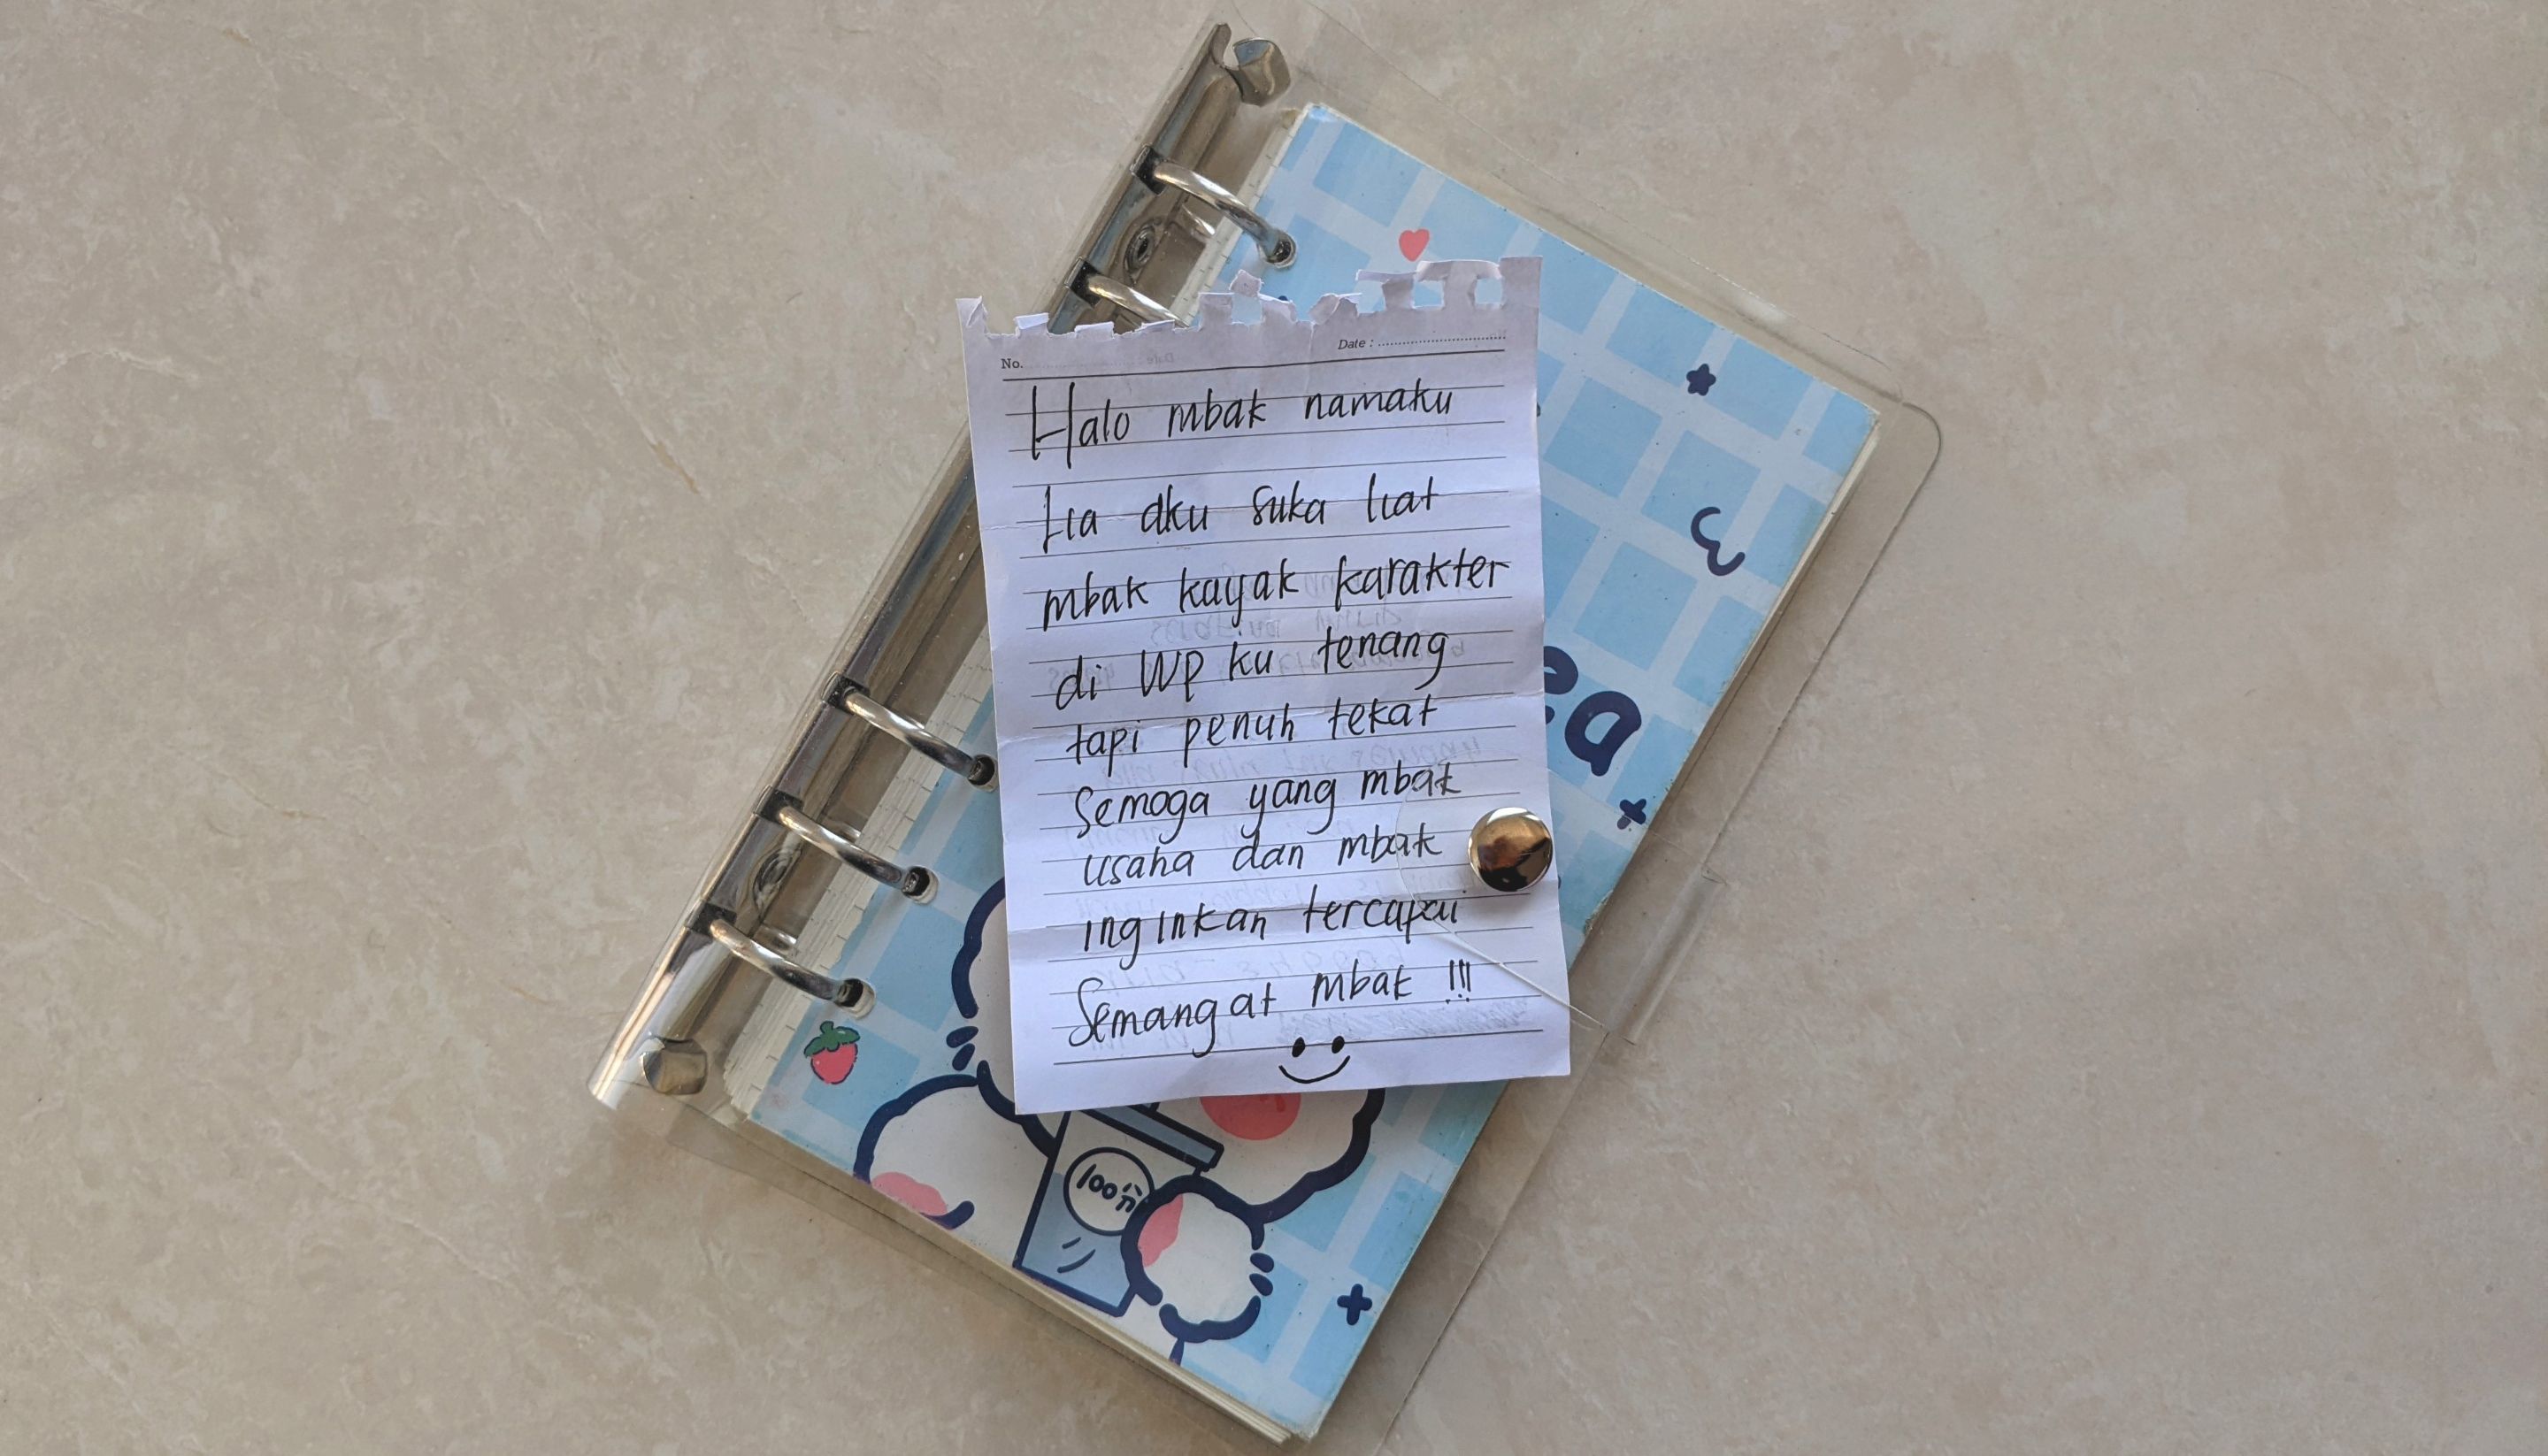 No.
Date :
Halo mbak namaku
Lia aku suka liat
mbak kayak karakter
di WP ku tenang
tapi penuh tekat
Semoga yang mbak
usaha dan mbak
inginkan tercapai
Semangat mbak !!!
100